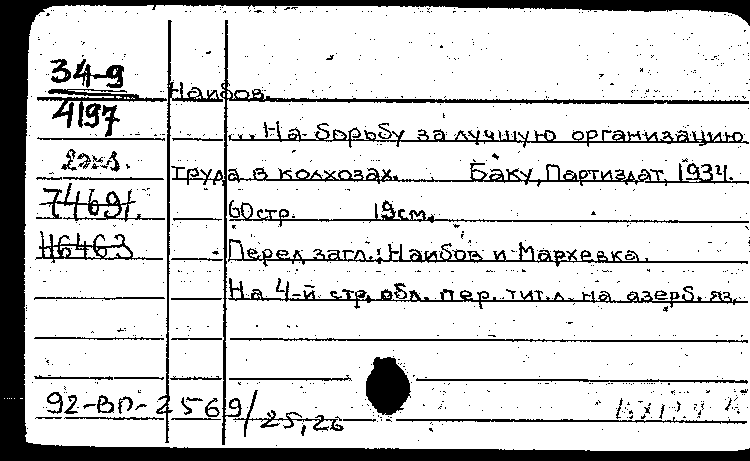 34-9
4197
2экз.
74691.
116463
Наибов.
... На борьбу за лучшую организацию
труда в колхозах. Баку, Партиздат, 1934.
60стр. 19см.
Перед загл.: Наибов и Мархевка.
На 4-й стр. обл. пер. тит.л. на азерб. яз.
92-ВП-2569/25,26